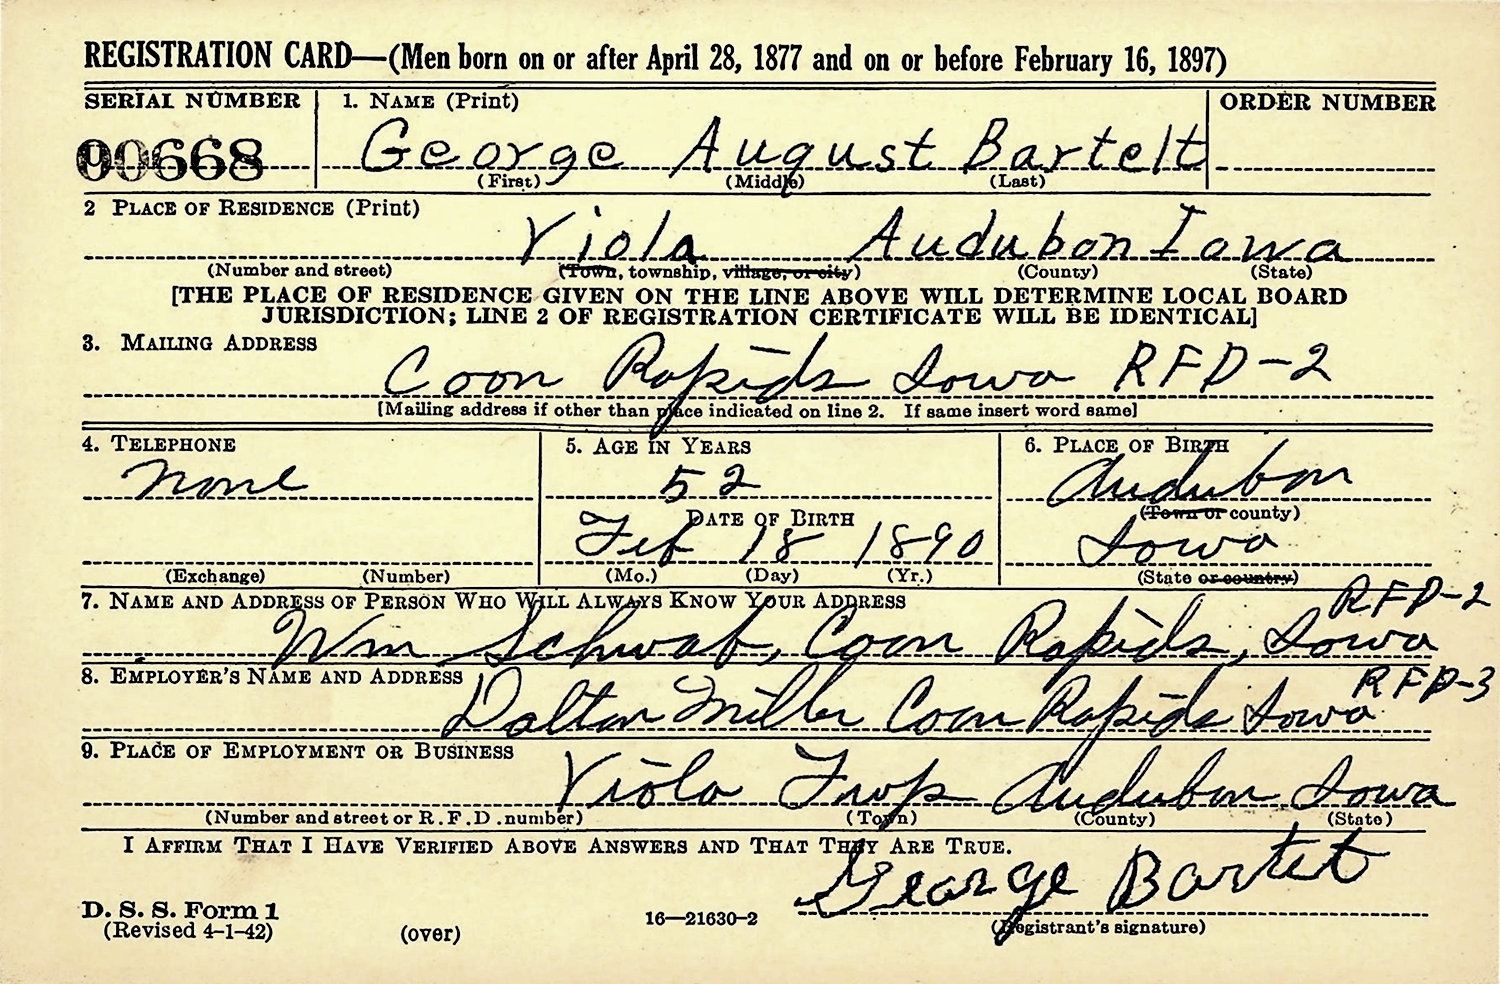 REGISTRATION CARD—(Men born on or after April 28, 1877 and on or before February 16, 1897)
SERIAL NUMBER 1. NAME (Print) ORDER NUMBER
00668 George August Bartelt
(First) (Middle) (Last)
2 PLACE OF RESIDENCE (Print)
Viola Audubon Iowa
(Number and street) (Town, township, village, or city) (County) (State)
[THE PLACE OF RESIDENCE GIVEN ON THE LINE ABOVE WILL DETERMINE LOCAL BOARD
JURISDICTION; LINE 2 OF REGISTRATION CERTIFICATE WILL BE IDENTICAL]
3. MAILING ADDRESS
Coon Rapids Iowa RFD-2
[Mailing address if other than place indicated on line 2. If same insert word same]
4. TELEPHONE 5. AGE IN YEARS 6. PLACE OF BIRTH
None 52 Audubon
DATE OF BIRTH (Town or county)
Feb 18 1890 Iowa
(Exchange) (Number) (Mo.) (Day) (Yr.) (State or country)
7. NAME AND ADDRESS OF PERSON WHO WILL ALWAYS KNOW YOUR ADDRESS RFD-2
Wm Schwab, Coon Rapids, Iowa
8. EMPLOYER'S NAME AND ADDRESS RFD-3
Dalton Miller Coon Rapids Iowa
9. PLACE OF EMPLOYMENT OR BUSINESS
Viola Twp Audubon Iowa
(Number and street or R.F.D. number) (Town) (County) (State)
I AFFIRM THAT I HAVE VERIFIED ABOVE ANSWERS AND THAT THEY ARE TRUE.
George Bartelt
D. S. S. Form 1
(Revised 4-1-42) (over) 16—21630-2 (Registrant's signature)